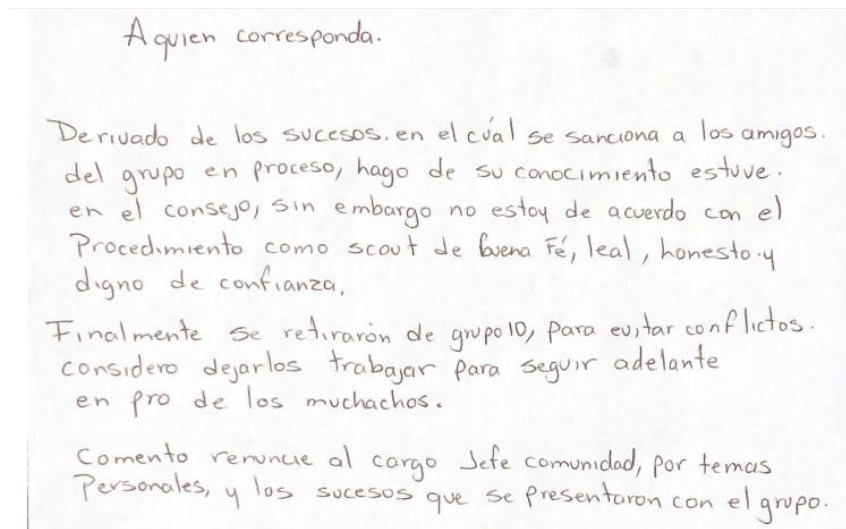 A quien corresponda.
Derivado de los sucesos. en el cuál se sanciona a los amigos.
del grupo en proceso, hago de su conocimiento estuve.
en el consejo, sin embargo no estoy de acuerdo con el
Procedimiento como scout de buena Fé, leal, honesto y
digno de confianza.
Finalmente se retirarón de grupo 10, para evitar conflictos.
considero dejarlos trabajar para seguir adelante
en pro de los muchachos.
Comento renuncie al cargo Jefe comunidad, por temas
Personales, y los sucesos que se presentaron con el grupo.